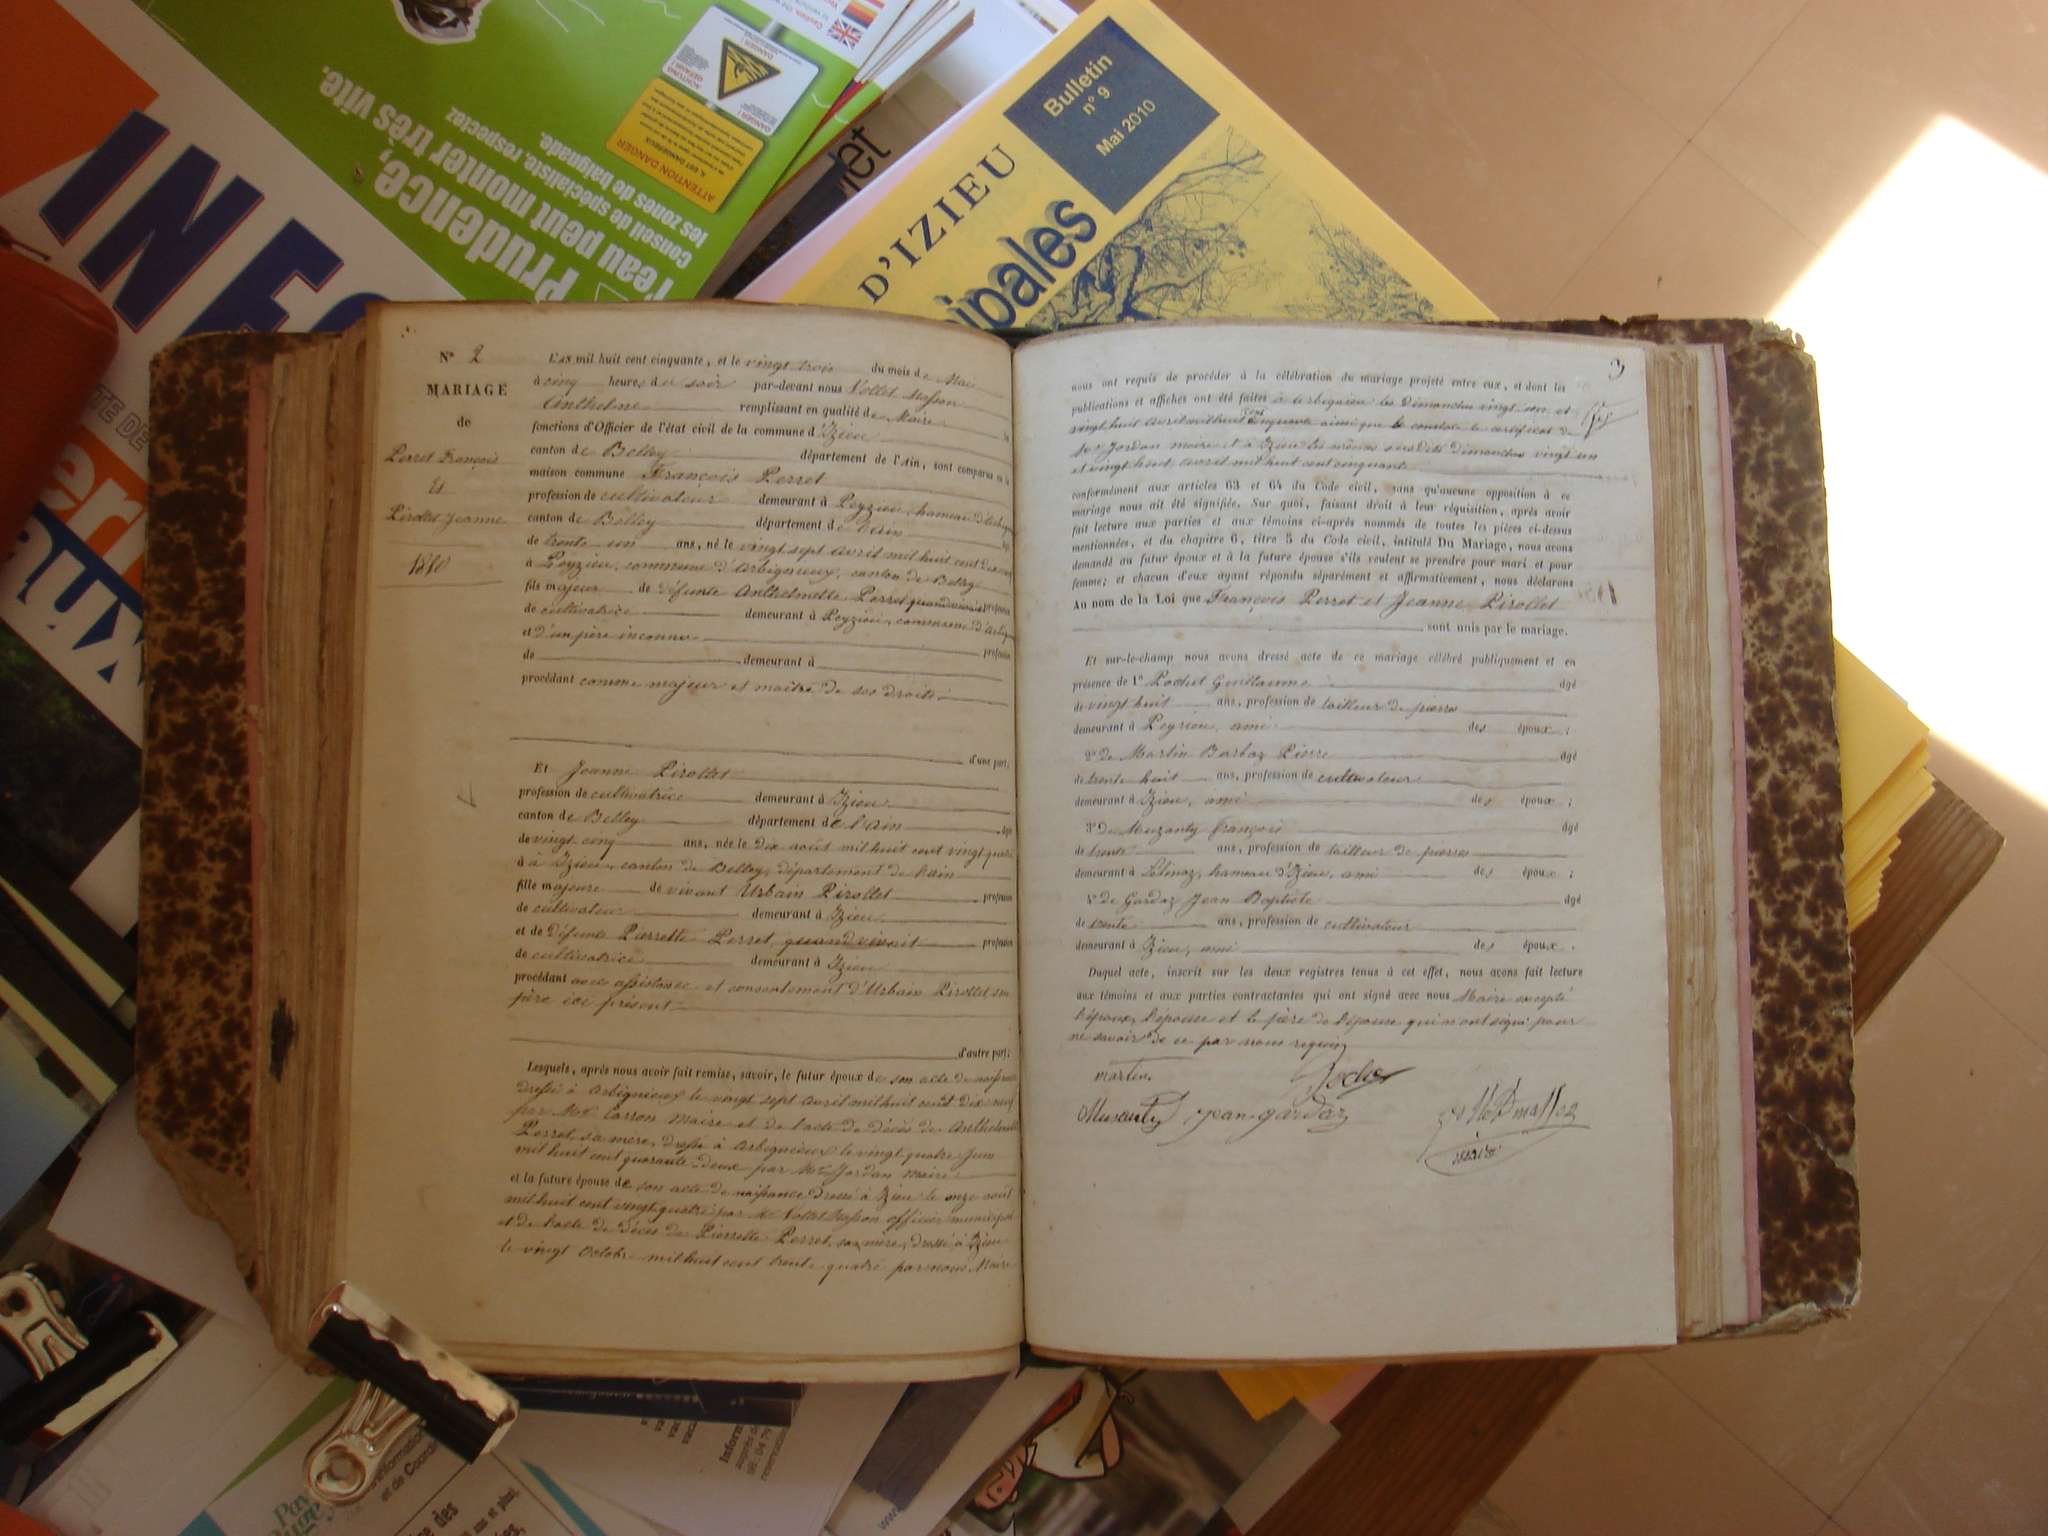 INFO
Prudence,
l'eau peut monter très vite.
Conseil de spécialiste, respectez
les zones de baignade.
ATTENTION DANGER
DANGER !
Bulletin
n° 9
Mai 2010
D'IZIEU
ipales
N° 2
MARIAGE
de
Perret François
Et
Pirollet Jeanne
1850
L'AN mil huit cent cinquante, et le vingt trois du mois de Mai
à cinq heures du soir par-devant nous Vollet Masson
Anthelme remplissant en qualité de Maire
fonctions d'Officier de l'état civil de la commune d'Izieu
canton de Belley département de l'Ain, sont comparus en la
maison commune François Perret
profession de cultivateur demeurant à Peyzieu, hameau d'Arbignieu
canton de Belley département de l'ain
de trente un ans, né le vingt sept avril mil huit cent dix neuf
à Peyzieu, commune d'Arbignieux, canton de Belley
fils majeur de défunte Anthelmette Perret quand vivait profession
de cultivatrice demeurant à Peyzieu, commune d'Arbig
et d'un père inconnu profession
de demeurant à
procédant comme majeur et maître de ses droits
d'une part;
Et Jeanne Pirollet
profession de cultivatrice demeurant à Izieu
canton de Belley département de l'ain âgé
de vingt cinq ans, née le dix août mil huit cent vingt quatre
à à Izieu, canton de Belley, département de l'ain
fille majeure de vivant Urbain Pirollet profession
de cultivateur demeurant à Izieu
et de défunte Pierrette Perret, quand vivait profession
de cultivatrice demeurant à Izieu
procédant avec assistance et consentement d'Urbain Pirollet, son
père ici présent
d'autre part;
Lesquels, après nous avoir fait remise, savoir, le futur époux de son acte de naissance
dressé à Arbignieux le vingt sept avril mil huit cent dix neuf
par Mr Carron Maire et de l'acte de décès de Anthelmette
Perret, sa mère, dressé à Arbignieux le vingt quatre Juin
mil huit cent quarante-deux par Mr Jordan maire
et la future épouse de son acte de naissance dressé à Izieu le onze août
mil huit cent vingt quatre par Mr Vollet Masson officier municipal
et de l'acte de décès de Pierrette Perret, sa mère, dressé à Izieu
le vingt Octobre mil huit cent trente quatre par nous Maire
3
nous ont requis de procéder à la célébration du mariage projeté entre eux, et dont les
publications et affiches ont été faites à Arbignieu les Dimanches vingt un et
vingt huit avril mil huit cent cinquante ainsi que le constate le certificat de
Mr Jordan maire et à Izieu les mêmes susdits dimanches vingt un
et vingt huit avril mil huit cent cinquante
conformément aux articles 63 et 64 du Code civil, sans qu'aucune opposition à ce
mariage nous ait été signifiée. Sur quoi, faisant droit à leur réquisition, après avoir
fait lecture aux parties et aux témoins ci-après nommés de toutes les pièces ci-dessus
mentionnées, et du chapitre 6, titre 5 du Code civil, intitulé Du Mariage, nous avons
demandé au futur époux et à la future épouse s'ils veulent se prendre pour mari et pour
femme; et chacun d'eux ayant répondu séparément et affirmativement, nous déclarons
Au nom de la Loi que François Perret et Jeanne Pirollet
sont unis par le mariage.
Et sur-le-champ nous avons dressé acte de ce mariage célébré publiquement et en
présence de 1° Pochet Guillaume âgé
de vingt huit ans, profession de tailleur de pierre
demeurant à Peyrieu, ami des époux;
2° de Martin Barbaz Pierre âgé
de trente huit ans, profession de cultivateur
demeurant à Izieu, ami des époux;
3° de Muzanty François âgé
de trente ans, profession de tailleur de pierres
demeurant à Lélinaz, hameau d'Izieu, ami des époux;
4° de Gardaz Jean Baptiste âgé
de trente ans, profession de cultivateur
demeurant à Izieu, ami des époux.
Duquel acte, inscrit sur les deux registres tenus à cet effet, nous avons fait lecture
aux témoins et aux parties contractantes qui ont signé avec nous Maire excepté
l'époux, l'épouse et le père de l'épouse qui n'ont signé pour
ne savoir de ce par nous requis
martin
Pochet
Muzanty Jean gardaz
maire